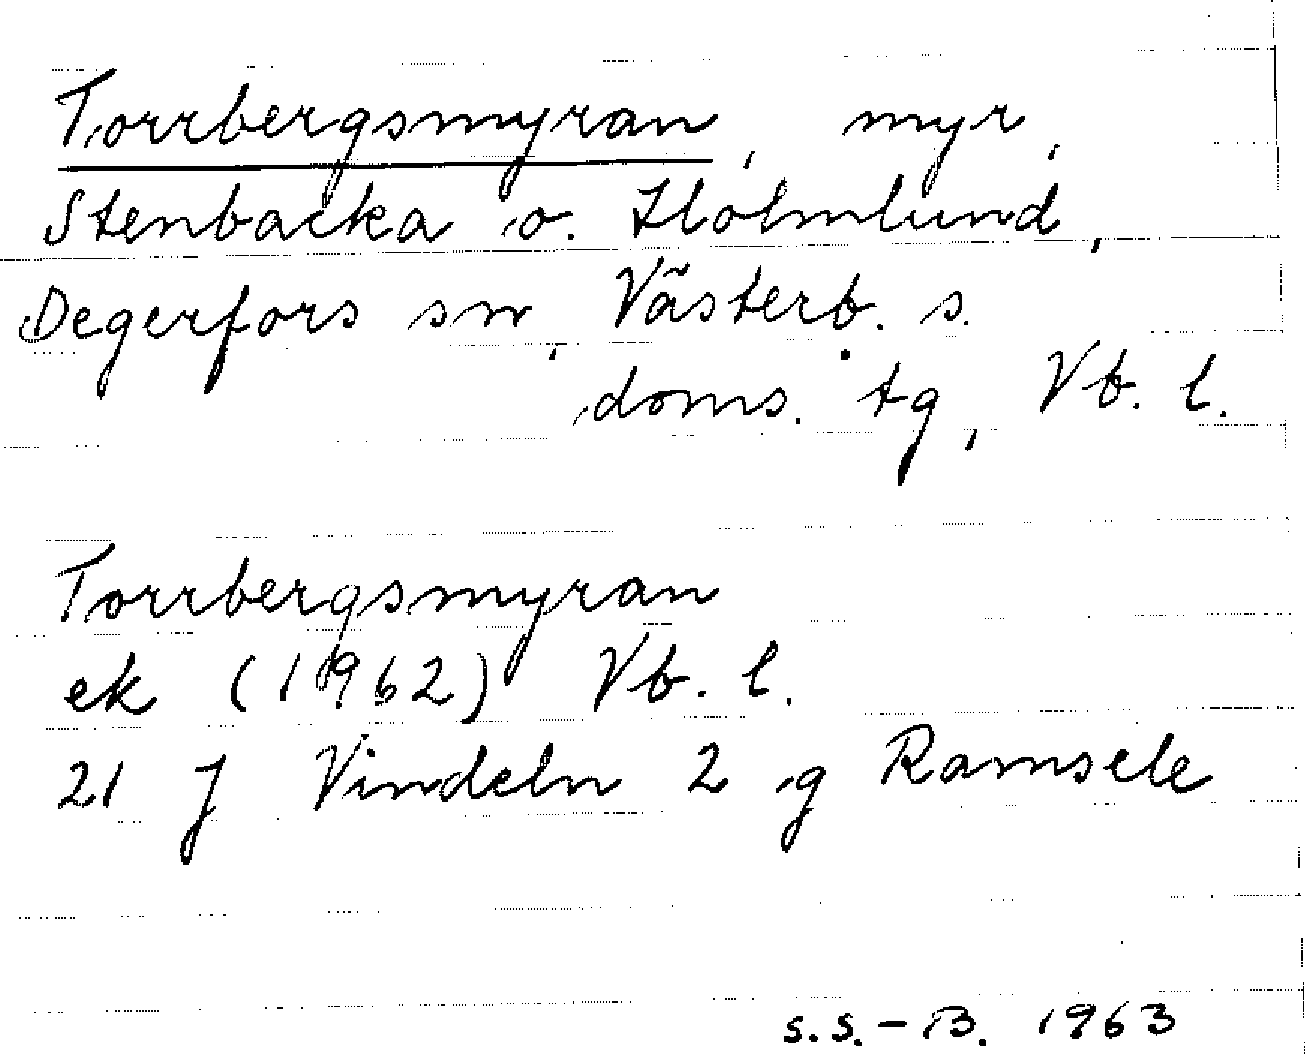 Torrbergsmyran, myr,
Stenbacka o. Holmlund,
Degerfors sn, Västerb. s.
doms. tg, Vb. l.
Torrbergsmyran
ek (1962) Vb. l.
21 J Vindeln 2 g Ramsele
S.S.-B. 1963